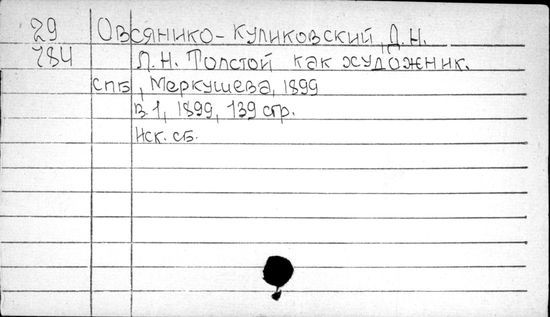 29 Овсянико-Куликовский, Д.Н.
784 Л.Н. Толстой как художник.
СПБ, Меркушева, 1899
В 1, 1899, 139 стр.
Иск. сб.